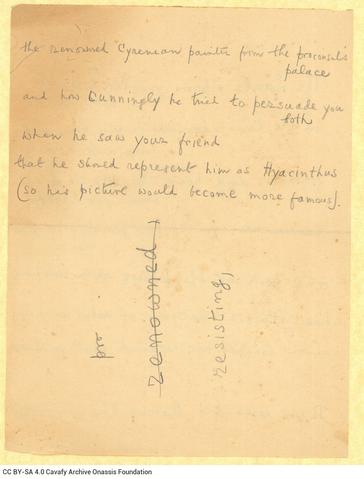 the renowned Cyrenean painter from the proconsul's
palace
and how cunningly he tried to persuade you
both
when he saw your friend
that he should represent him as Hyacinthus
(so his picture would become more famous).
pro
renowned
resisting,
CC BY-SA 4.0 Cavafy Archive Onassis Foundation